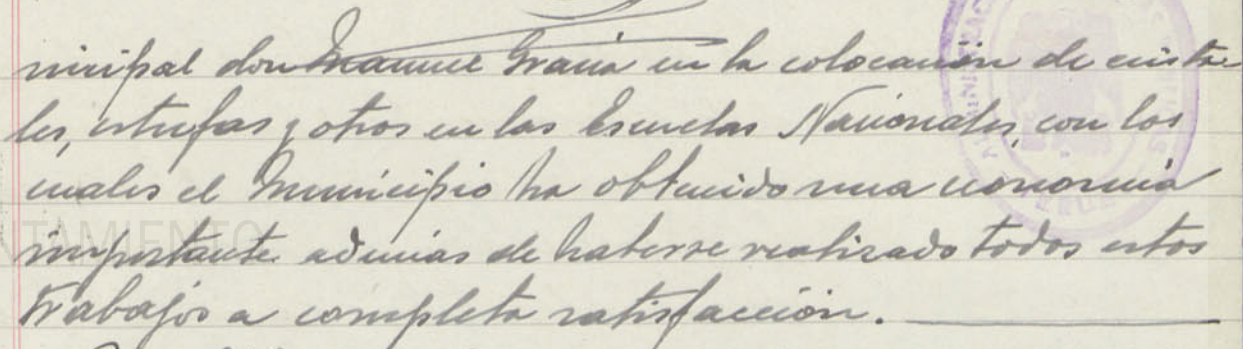 nicipal don Manuel Gracia en la colocación de crista-
les, estufas y otros en las Escuelas Nacionales, con los
cuales el Municipio ha obtenido una economía
importante además de haberse realizado todos estos
trabajos a completa satisfacción.